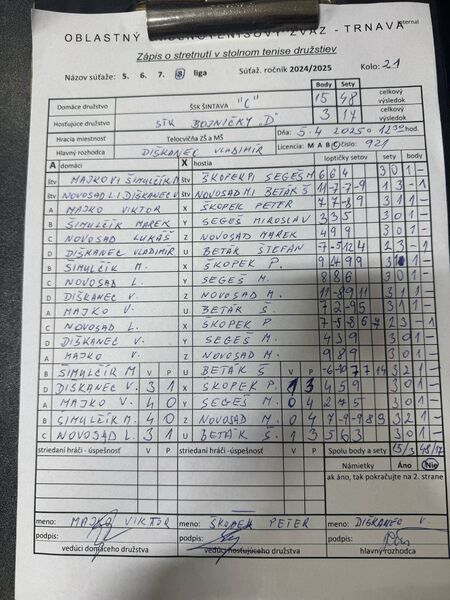 OBLASTNÝ STOLNOTENISOVÝ ZVÄZ - TRNAVA
Internal
Zápis o stretnutí v stolnom tenise družstiev
Názov súťaže: 5. 6. 7. 8 liga Súťaž. ročník 2024/2025 Kolo: 21
Body Sety
Domáce družstvo ŠSK ŠINTAVA "C" 15 48 celkový výsledok
Hosťujúce družstvo STK BOJNIČKY "D" 3 17 celkový výsledok
Hracia miestnosť Telocvičňa ZŠ a MŠ Dňa: 5.4.2025 o 12 30 hod.
Hlavný rozhodca DIŠKANEC VLADIMÍR Licencia: M A B C číslo: 921
A domáci X hostia loptičky setov sety body
štv MAJKO V. ŠIMULČÍK M. štv ŠKOPEK P. SEGEŠ M. 6 6 4 3 0 1 -
štv NOVOSAD L. DIŠKANEC V. štv NOVOSAD M. BETÁK Š. 11 -7 -7 -9 1 3 - 1
A MAJKO VIKTOR X ŠKOPEK PETER
B ŠIMULČÍK MAREK Y SEGEŠ MIROSLAV 3 3 5 3 0 1 -
C NOVOSAD LUKÁŠ Z NOVOSAD MAREK 4 9 9 3 0 1 -
D DIŠKANEC VLADIMÍR U BETÁK ŠTEFAN 2 3 - 1
B ŠIMULČÍK M. X ŠKOPEK P.
C NOVOSAD L. Y SEGEŠ M. 8 8 6 3 0 1 -
D DIŠKANEC V. Z NOVOSAD M. 11 -8 9 11 3 1 1 -
A MAJKO V. U BETÁK Š. 7 2 -9 5 3 1 1 -
C NOVOSAD L. X ŠKOPEK P. 2 3 - 1
D DIŠKANEC V. Y SEGEŠ M. 4 3 9 3 0 1 -
A MAJKO V. Z NOVOSAD M. 9 8 9 3 0 1 -
B ŠIMULČÍK M V P U BETÁK Š V P -6 -10 7 7 14 3 2 1 -
D DIŠKANEC V. 3 1 X ŠKOPEK P. 1 3 4 5 9 3 0 1 -
A MAJKO V. 4 0 Y SEGEŠ M. 0 4 2 7 5 3 0 1 -
B ŠIMULČÍK M. 4 0 Z NOVOSAD M. 0 4 7 -9 -9 8 9 3 2 1 -
C NOVOSAD L. 3 1 U BETÁK Š. 1 3 5 6 3 3 0 1 -
striedaní hráči - úspešnosť V P striedaní hráči - úspešnosť V P Spolu body a sety 15/3 48/17
Námietky Áno Nie
ak áno, tak pokračujte na 2. strane
meno: MAJKO VIKTOR meno: ŠKOPEK PETER meno: DIŠKANEC V.
podpis: podpis: podpis:
vedúci domáceho družstva vedúci hosťujúceho družstva hlavný rozhodca